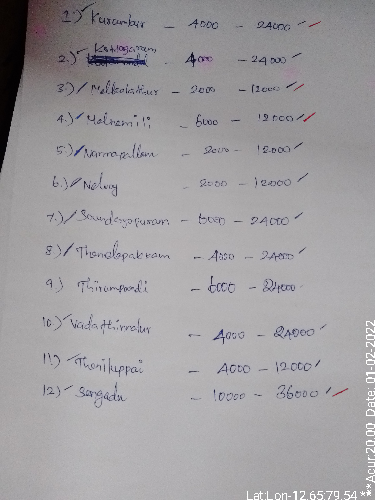 1.) Kurambur - 4000 - 24000
2.) Kottogaram - 4000 - 24000
3.) Melkolathur - 2000 - 12000
4.) Melnemili - 6000 - 12000
5.) Narmapallam - 2000 - 12000
6.) Nelvoy - 2000 - 12000
7.) Soundaryapuram - 6000 - 24000
8.) Thenelapakkam - 4000 - 24000
9.) - 6000 - 24000
10.) Vadathinalur - 4000 - 24000
11.) Theniluppai - 4000 - 12000
12) Sengadu - 10000 - 36000
Lat:Lon-12.65:79.54 ***Acur:20.00, Date: 01-02-2022